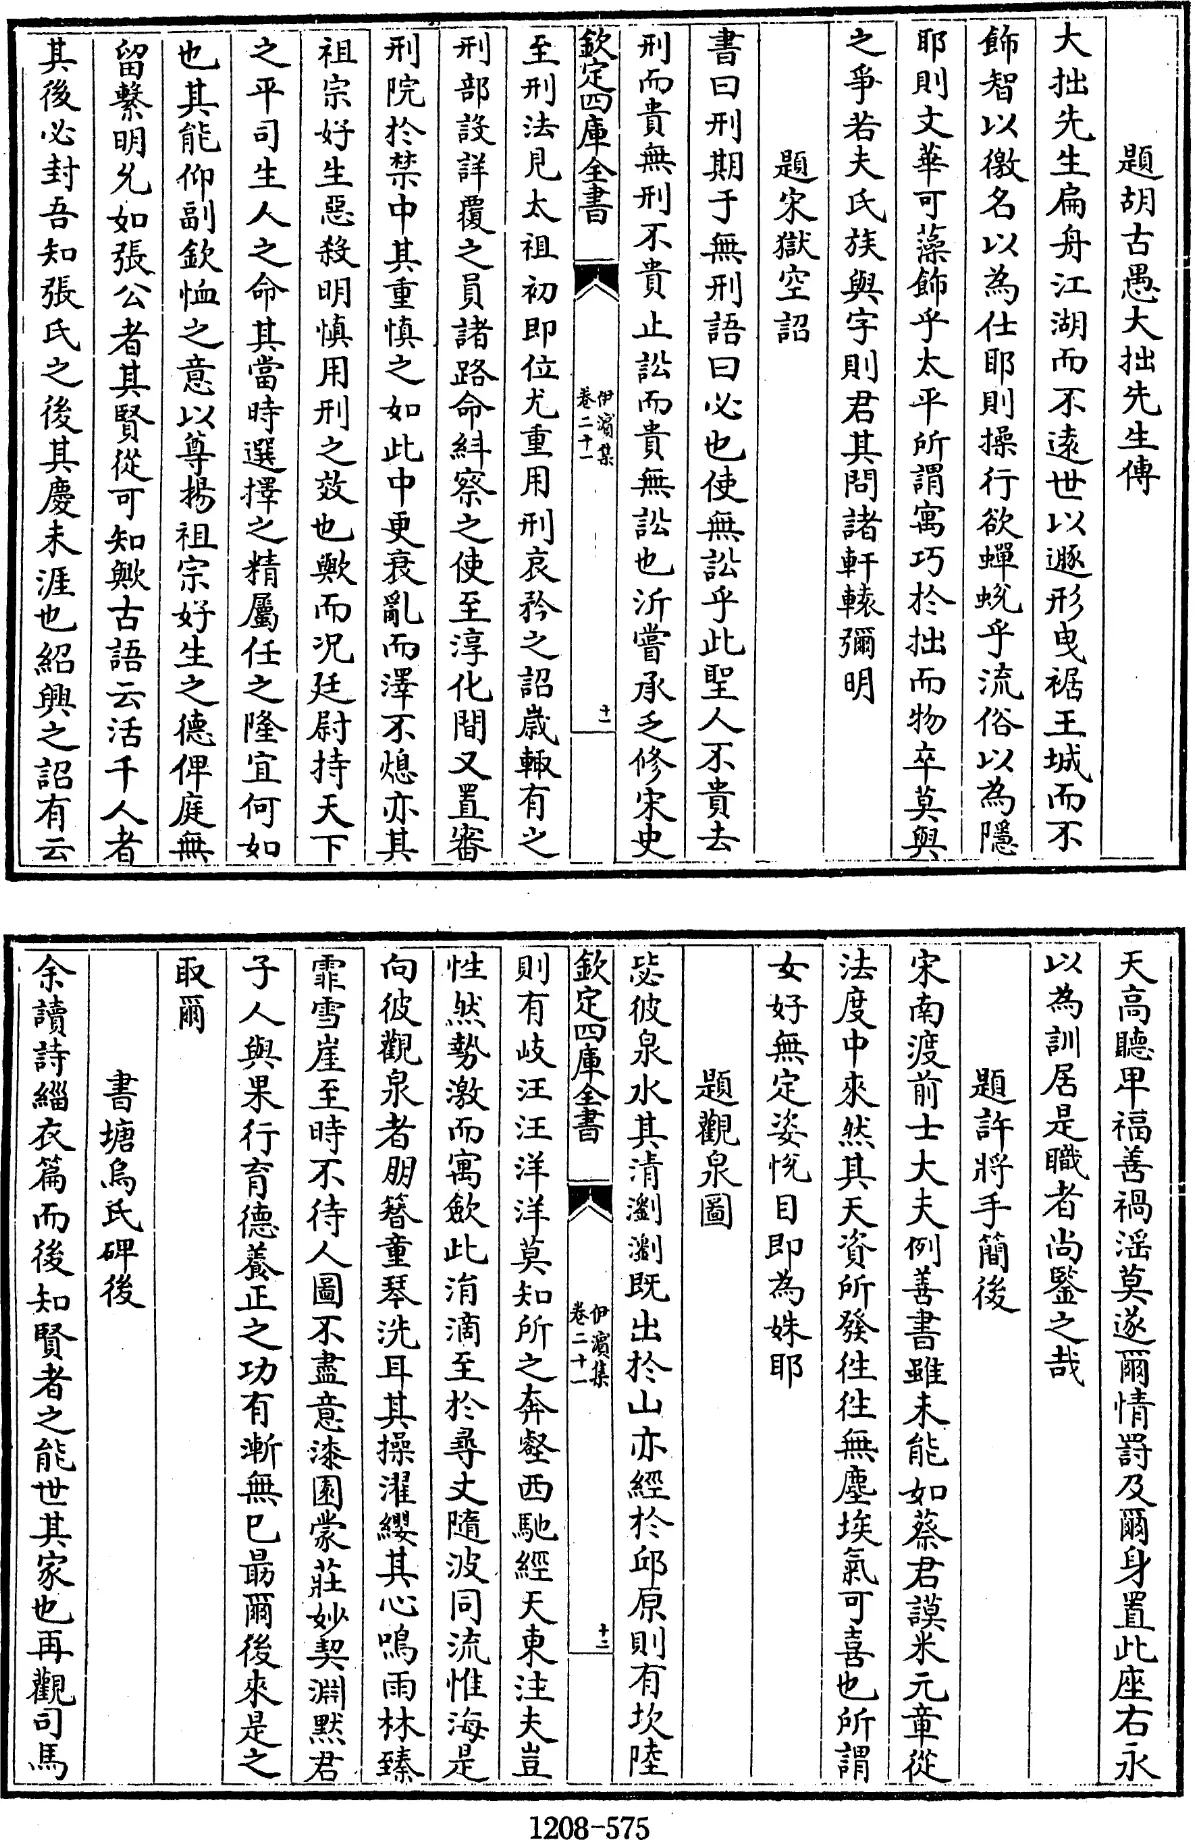 題胡古愚大拙先生傳
大拙先生扁舟江湖而不遠世以遯形曳裾王城而不
飾智以徼名以為仕耶則操行欲蟬蛻乎流俗以為隱
耶則文華可藻飾乎太平所謂寓巧於拙而物卒莫與
之爭若夫氏族與字則君其問諸軒轅彌明
題宋獄空詔
書曰刑期于無刑語曰必也使無訟乎此聖人不貴去
刑而貴無刑不貴止訟而貴無訟也沂嘗承乏修宋史
欽定四庫全書
伊濱集
卷二十一
十一
至刑法見太祖初即位尤重用刑哀矜之詔歲輙有之
刑部設詳覆之員諸路命糾察之使至淳化間又置審
刑院於禁中其重慎之如此中更衰亂而澤不熄亦其
祖宗好生惡殺明慎用刑之效也歟而况廷尉持天下
之平司生人之命其當時選擇之精屬任之隆宜何如
也其能仰副欽恤之意以尊揚祖宗好生之德俾庭無
留繫明允如張公者其賢從可知歟古語云活千人者
其後必封吾知張氏之後其慶未涯也紹興之詔有云
天高聽甲福善禍滛莫遂爾情罸及爾身置此座右永
以為訓居是職者尚鑒之哉
題許將手簡後
宋南渡前士大夫例善書雖未能如蔡君謨米元章從
法度中來然其天資所發徃徃無塵埃氣可喜也所謂
女好無定姿悅目即為姝耶
題觀泉圖
毖彼泉水其清瀏瀏既出於山亦經於邱原則有坎陸
欽定四庫全書
伊濱集
卷二十一
十二
則有岐汪汪洋洋莫知所之奔壑西馳經天東注夫豈
性然勢激而寓歛此涓滴至於尋丈隨波同流惟海是
向彼觀泉者朋簪童琴洗耳其操濯纓其心鳴雨林臻
霏雪崖至時不待人圖不盡意漆園蒙莊妙契淵默君
子人與果行育德養正之功有漸無已最爾後來是之
取爾
書塘烏氏碑後
余讀詩緇衣篇而後知賢者之能世其家也再觀司馬
1208-575